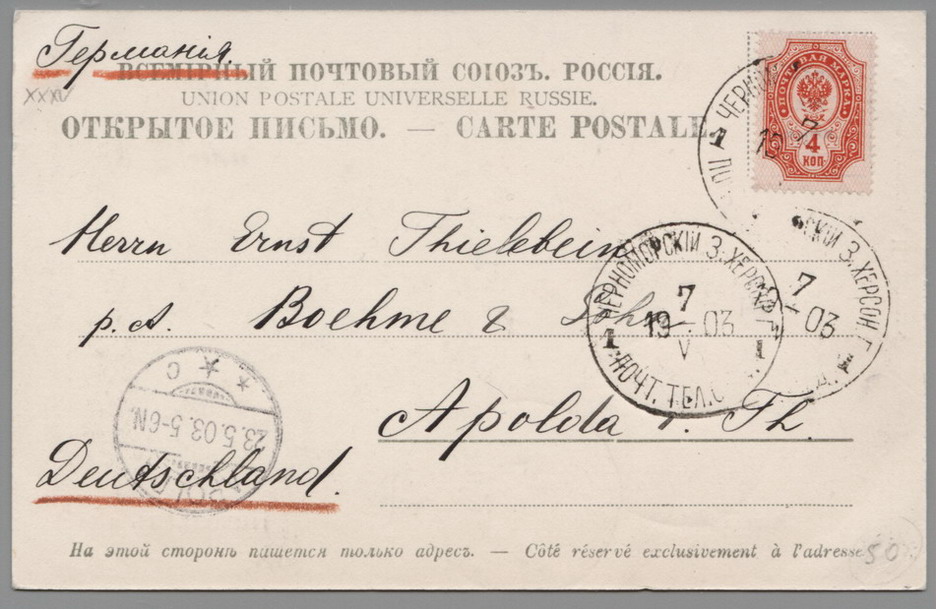 Германія.
ВСЕМІРНЫЙ ПОЧТОВЫЙ СОЮЗЪ. РОССІЯ.
XXXV
UNION POSTALE UNIVERSELLE RUSSIE.
ОТКРЫТОЕ ПИСЬМО. — CARTE POSTALE.
ПОЧТОВАЯ МАРКА.
4
КОП.
ЧЕРНОМ
1
7
Herrn Ernst Thielebein
p. A. Boehme &
ЧЕРНОМОРСКІЙ З. ХЕРСОН Г.
7
19 03
V
1 1
ПОЧТ. ТЕЛ.
СКІЙ З. ХЕРСОН Г.
7
03
1
Apolda i. Th.
23.5.03.5-6N.
C
Deutschland.
На этой сторонѣ пишется только адресъ. — Côté réservé exclusivement à l'adresse
50